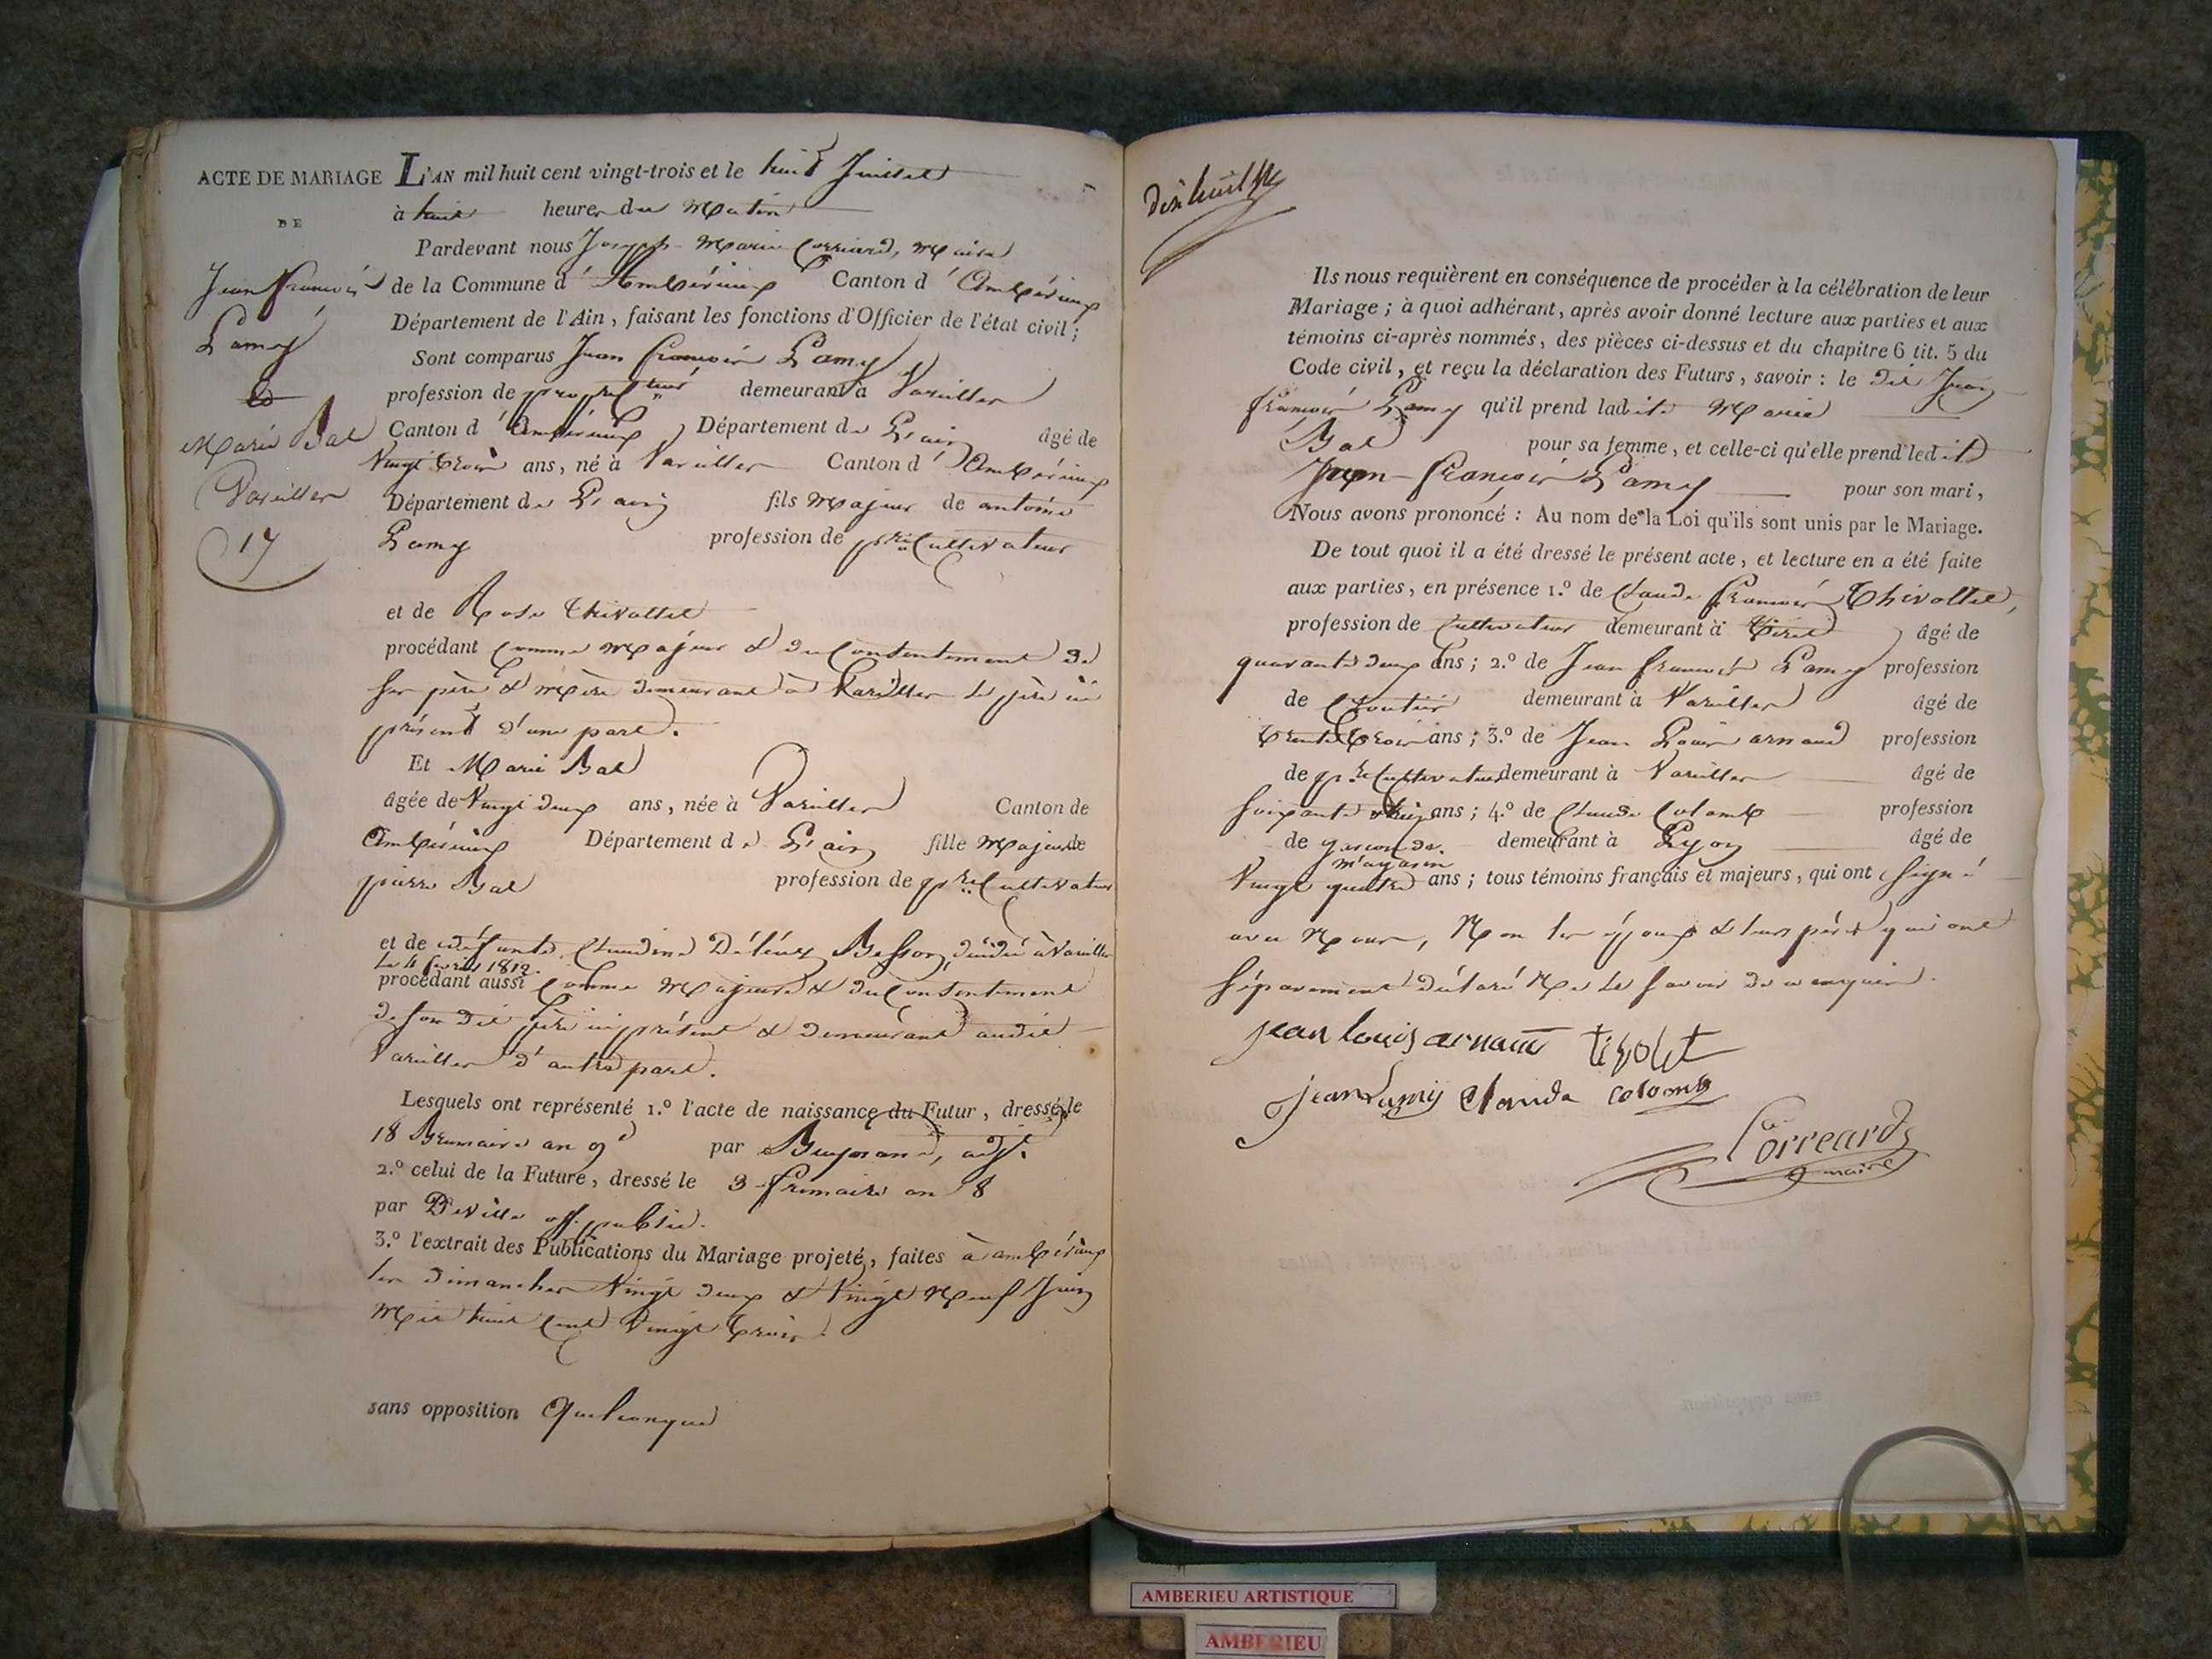 ACTE DE MARIAGE
DE
Jean françois
Lamy
&
Marie Bal
Vareilles
17
L'AN mil huit cent vingt-trois et le huit Juillet
à huit heures du Matin
Pardevant nous Joseph Marie Corréard, Maire
de la Commune d'Ambérieux Canton d'Ambérieux
Département de l'Ain, faisant les fonctions d'Officier de l'état civil;
Sont comparus Jean françois Lamy
profession de demeurant à Vareilles
Canton d'Ambérieux Département de L'ain âgé de
Vingt trois ans, né à Vareilles Canton d'Ambérieux
Département de L'ain fils Majeur de antoine
Lamy profession de pre. Cultivateur
et de Rose Thivollet
procédant comme Majeur & du Consentement de
ses père & mère demeurant à Vareilles le père ici
présent d'une part.
Et Marie Bal
âgée de Vingt deux ans, née à Vareilles Canton de
Ambérieux Département de L'ain fille Majeure de
pierre Bal profession de pre. Cultivateur
et de défunte Claudine Besson, décédée à Vareilles
le 4 1812.
procédant aussi Comme Majeure & du Consentement
de son dit père ici présent & demeurant audit
Vareilles d'autre part.
Lesquels ont représenté 1.º l'acte de naissance du Futur, dressé le
18 Brumaire an 9 par adjt.
2.º celui de la Future, dressé le 3 frimaire an 8
par Deville off. public.
3.º l'extrait des Publications du Mariage projeté, faites à ambérieux
les dimanches Vingt deux & Vingt Neuf Juin
Mil huit Cent Vingt trois.
sans opposition Quelconque
dix huit
Ils nous requièrent en conséquence de procéder à la célébration de leur
Mariage; à quoi adhérant, après avoir donné lecture aux parties et aux
témoins ci-après nommés, des pièces ci-dessus et du chapitre 6 tit. 5 du
Code civil, et reçu la déclaration des Futurs, savoir: le dit Jean
françois Lamy qu'il prend ladite Marie
Bal pour sa femme, et celle-ci qu'elle prend ledit
Jean-françois Lamy pour son mari,
Nous avons prononcé: Au nom de la Loi qu'ils sont unis par le Mariage.
De tout quoi il a été dressé le présent acte, et lecture en a été faite
aux parties, en présence 1.º de Claude françois Thivollet,
profession de Cultivateur demeurant à Tiret âgé de
quarante deux ans; 2.º de Jean françois Lamy profession
de demeurant à Vareilles âgé de
trente trois ans; 3.º de Jean Louis arnaud profession
de pre. Cultivateur demeurant à Vareilles âgé de
soixante ans; 4.º de Claude Colomb profession
de garcon de magasin demeurant à Lyon âgé de
Vingt quatre ans; tous témoins français et majeurs, qui ont signé
avec Nous, Non les époux & leurs pères qui ont
séparément déclaré Ne le savoir de ce enquis.
jean louis arnaud tivolet
jean Lamy Claude colomb
Corréard
maire
AMBERIEU ARTISTIQUE
AMBERIEU